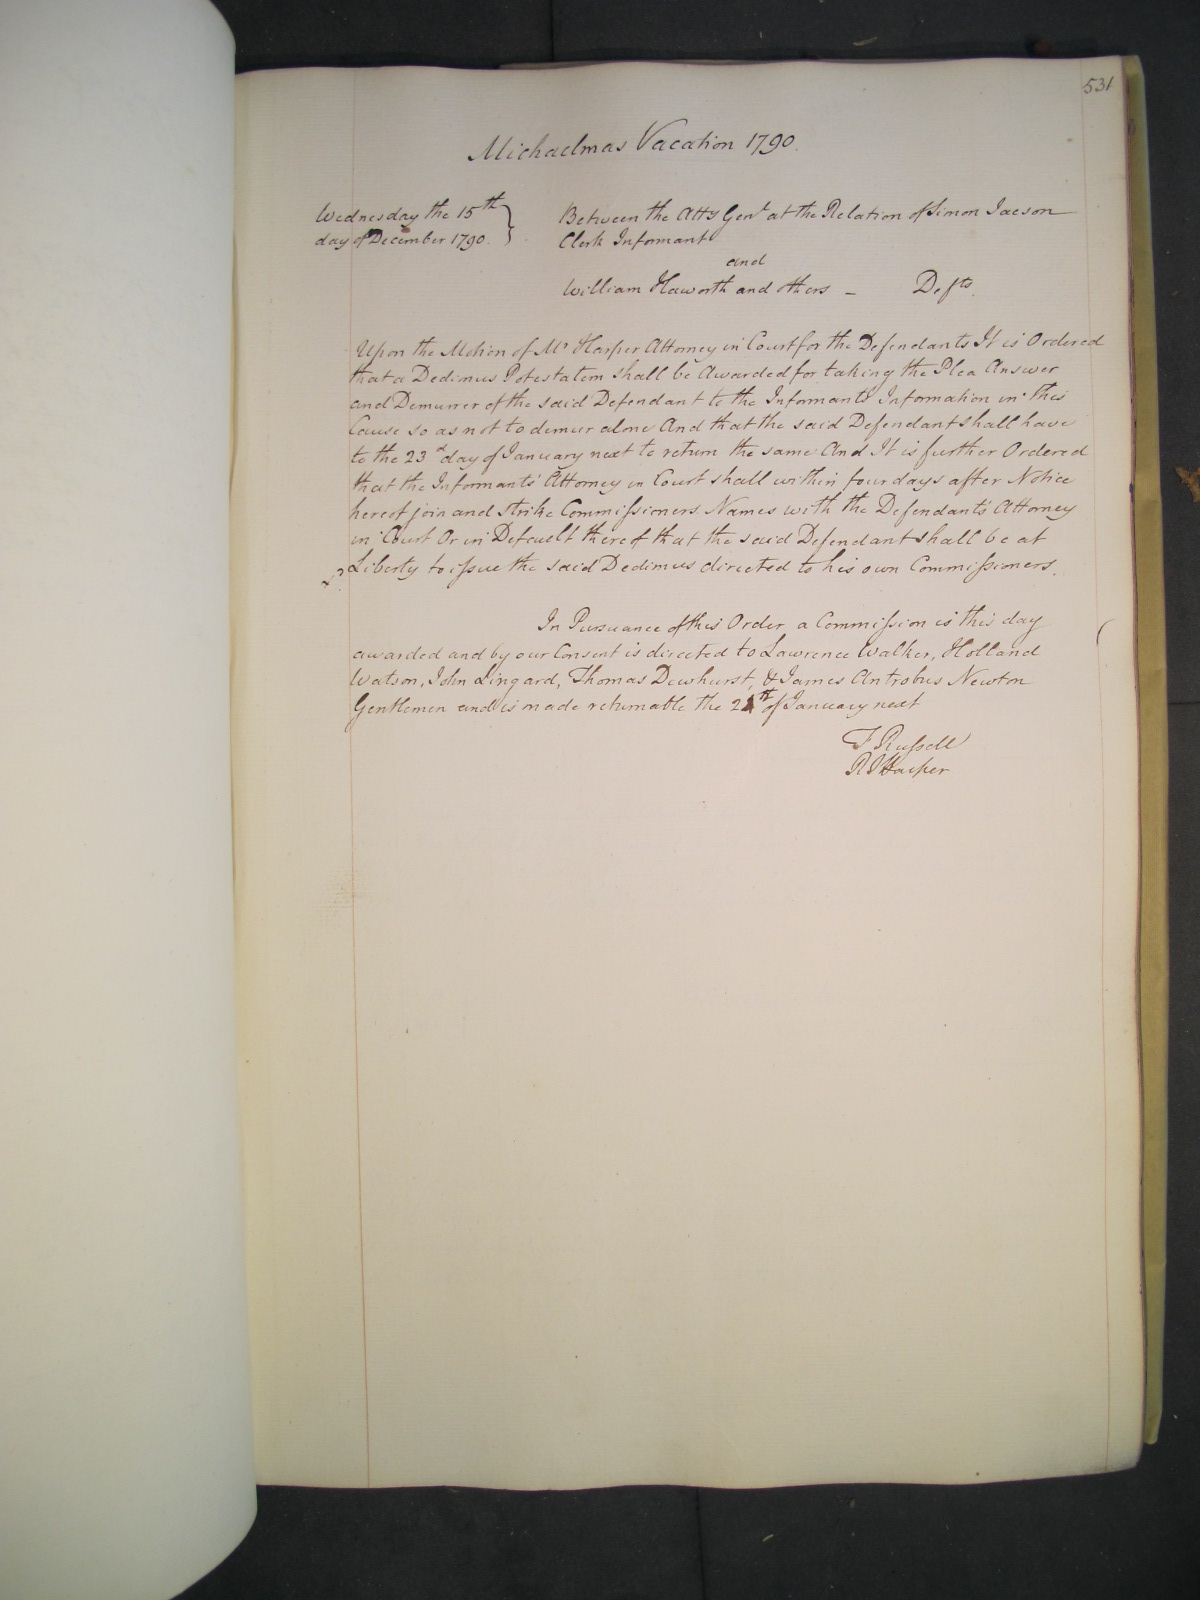 531
Michaelmas Vacation 1790.
Wednesday the 15th
day of December 1790.
Between the Atty Genl at the Relation of Simon Jacson
Clerk Informant
and
William Haworth and others – Defts.
Upon the Motion of Mr Harper Attorney in Court for the Defendants It is Ordered
that a Dedimus Potestatem shall be Awarded for taking the Plea Answer
and Demurrer of the said Defendant to the Informants Information in this
Cause so as not to demur alone And that the said Defendant shall have
to the 23d day of January next to return the same And It is further Ordered
that the Informants Attorney in Court shall within four days after Notice
hereof join and strike Commissioners Names with the Defendants Attorney
in Court Or in Default thereof that the said Defendant shall be at
Liberty to issue the said Dedimus directed to his own Commissioners.
In Pursuance of this Order a Commission is this day
awarded and by our Consent is directed to Lawrence Walker, Holland
Watson, John Lingard, Thomas Dewhurst, & James Antrobus Newton
Gentlemen and is made returnable the of January next
F Russell
R J Harper